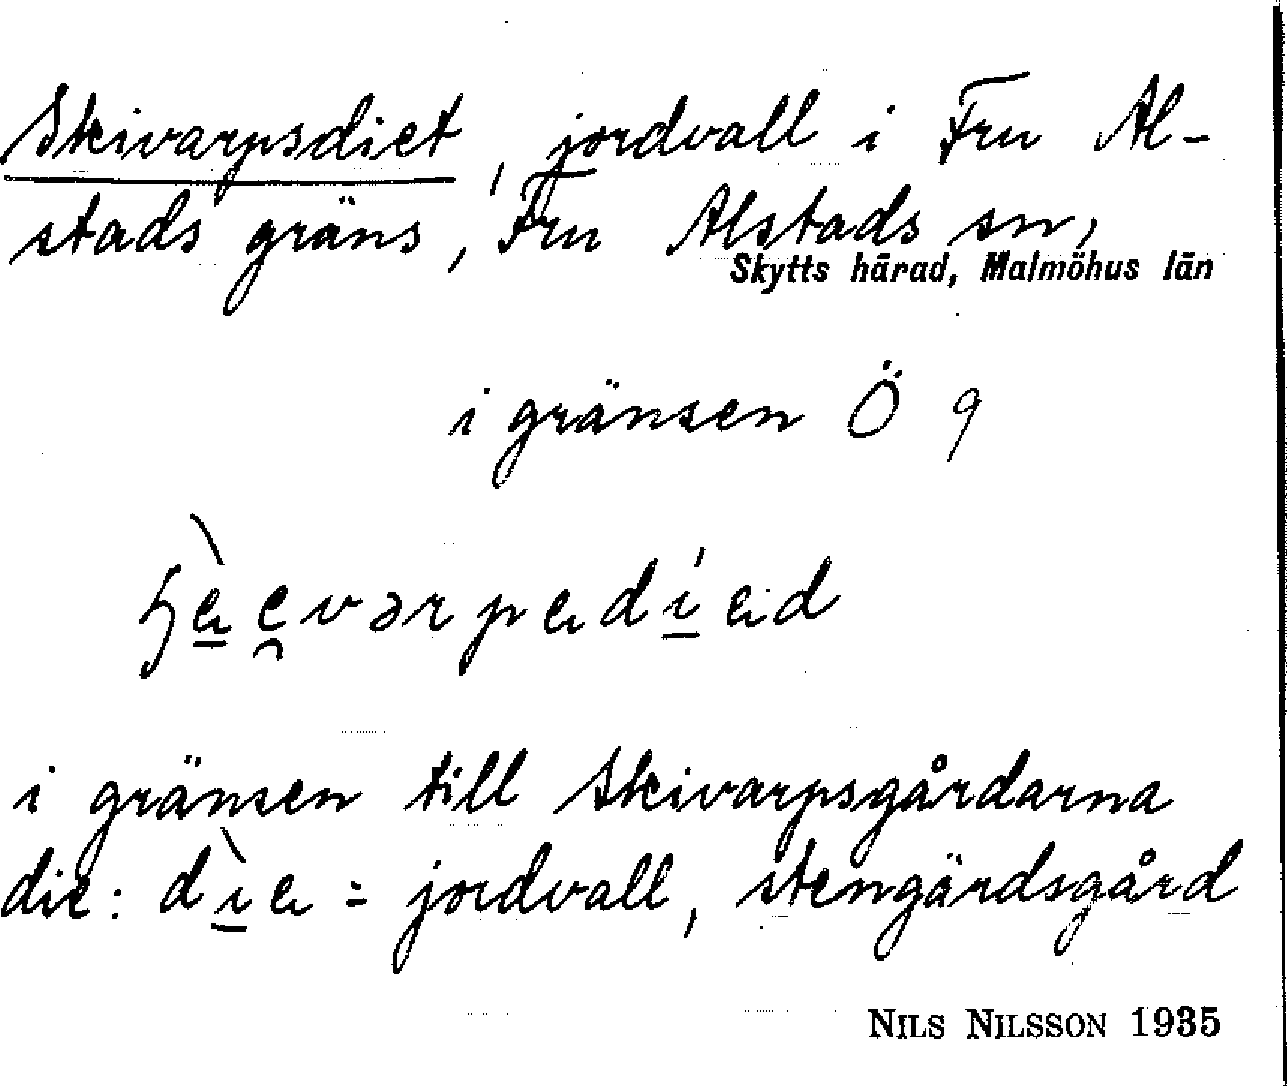 Skivarpsdiet, jordvall i Fru Al-
stads gräns, Fru Alstads sn,
Skytts härad, Malmöhus län
i gränsen Ö 9
i gränsen till Skivarpsgårdarna
die: = jordvall, stengärdsgård
NILS NILSSON 1935